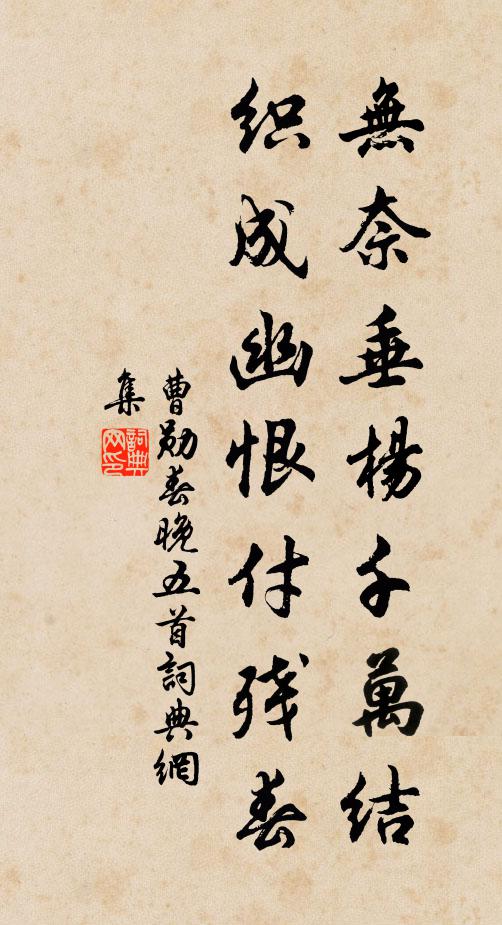 無奈垂楊千萬結
织成幽恨付残春
曹勛春晚五首詞典網
集
詞典網印